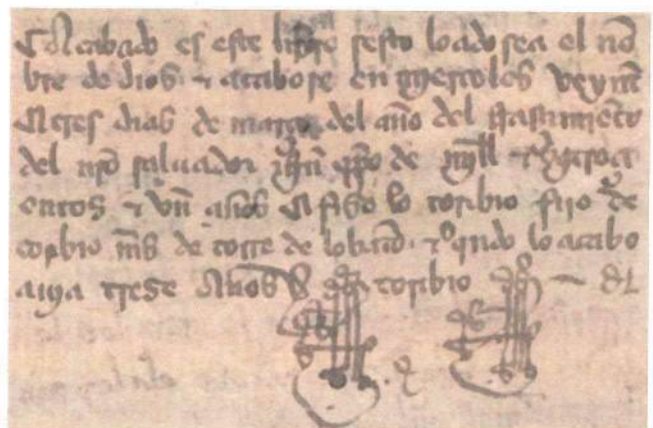 Acabado es este libro sesto loado sea el nō
bre de dios & acabose en miercoles veynt
& tres dias de março del año del nasçimiēto
del nr̄o saluador ihū xp̄o de mjll & q̄troçi
entos & vn años & fiso lo toribio fijo de
toribio mr̄s de torre de lobatō · & q̄ndo lo acabo
auja trese años toribio